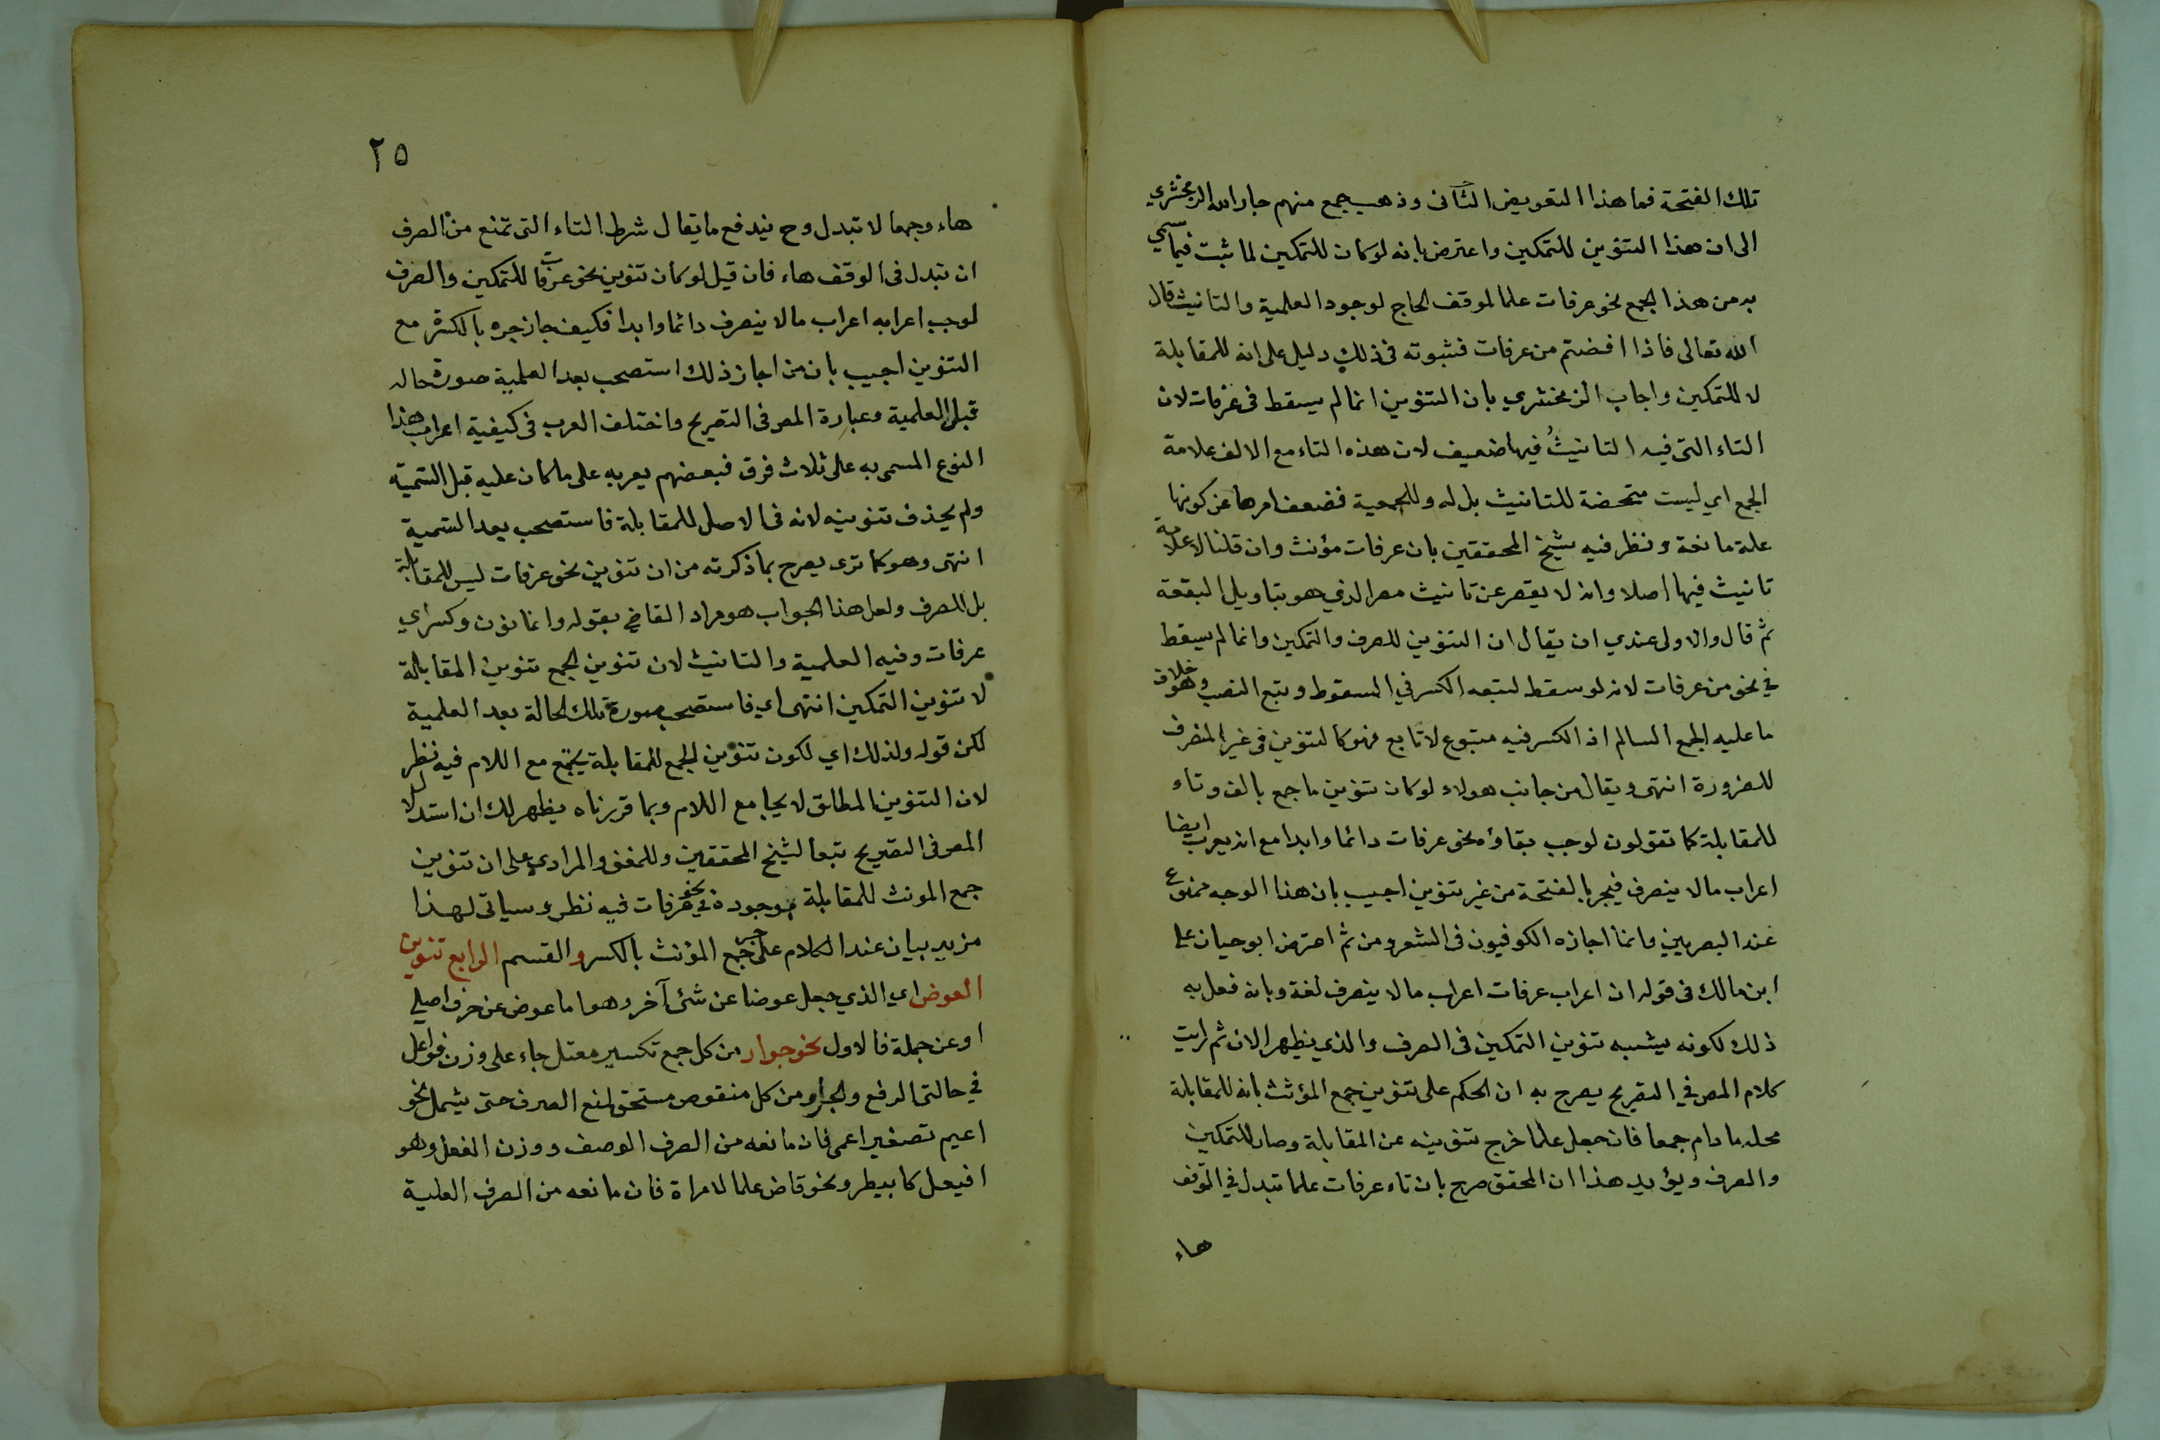 تلك الفتحة فما هذا التعويض الثانى وذهب جمع منهم جار الله الزمخشري
الى ان هذا التنوين للتمكين واعترض بانه لو كان للتمكين لما ثبت فيما سمي
به من هذا الجمع نحو عرفات علما لموقف الحاج لوجود العلمية والتانيث قال
الله تعالى فاذا افضتم من عرفات فثبوته فى ذلك دليل على انه للمقابلة
لا للتمكين واجاب الزمخشري بان التنوين انما لم يسقط فى عرفات لان
التاء التى فيه التانيث فيها ضعيف لان هذه التاء مع الالف علامة
الجمع اي ليست متمحضة للتانيث بل له وللجمعية فضعف امرها عن كونها
علة مانعة ونظر فيه شيخ المحققين بان عرفات مؤنث وان قلنا لا علامة
تانيث فيها اصلا وانه لا يقصر عن تانيث مصر الذي هو بتاويل البقعة
ثم قال والاولى عندي ان يقال ان التنوين للصرف والتمكين وانما لم يسقط
في نحو من عرفات لانه لو سقط لتبعه الكسر في السقوط وتبع النصب وهو خلاف
ما عليه الجمع السالم اذ الكسر فيه متبوع لا تابع فهو كالتنوين فى غير المنصرف
للضرورة انتهى ويقال من جانب هولاء لو كان تنوين ما جمع بالف وتاء
للمقابلة كما تقولون لوجب بقاؤه نحو عرفات دائما وابدا مع انه يعرب ايضا
اعراب ما لا ينصرف فيجر بالفتحة من غير تنوين اجيب بان هذا الوجه ممنوع
عند البصريين وانما اجازه الكوفيون فى الشعر ومن ثم اعترض ابو حيان على
ابن مالك فى قوله ان اعراب عرفات اعراب ما لا ينصرف لغة وبانه فعل به
ذلك لكونه يشبه تنوين التمكين فى الصرف والذي يظهر الان ثم رايت
كلام المص في التصريح يصرح به ان الحكم على تنوين جمع المؤنث بانه للمقابلة
محله ما دام جمعا فان جعل علما خرج تنوينه عن المقابلة وصار للتمكين
والصرف ويؤيد هذا ان المحقق صرح بان تاء عرفات علما تبدل في الوقف
هاء
٢٥
هاء وجمعا لا تبدل وح يندفع ما يقال شرط التاء التى تمنع من الصرف
ان تبدل فى الوقف هاء فان قيل لو كان تنوين نحو عرفات للتمكين والصرف
لوجب اعرابه اعراب ما لا ينصرف دائما وابدا فكيف جاز جره بالكسرة مع
التنوين اجيب بان من اجاز ذلك استصحب بعد العلمية صورت حاله
قبل العلمية وعبارة المص فى التصريح واختلف العرب فى كيفية اعراب هذا
النوع المسمى به على ثلاث فرق فبعضهم يعربه على ما كان عليه قبل التسمية
ولم يحذف تنوينه لانه فى الاصل للمقابلة فاستصحب بعد التسمية
انتهى وهو كما ترى يصرح بما ذكرته من ان تنوين نحو عرفات ليس للمقابلة
بل للصرف ولعل هذا الجواب هو مراد القاضي بقوله وانما نون وكسر اي
عرفات وفيه العلمية والتانيث لان تنوين الجمع تنوين المقابلة
لا تنوين التمكين انتهى اي فاستصحب صورة تلك الحالة بعد العلمية
لكن قوله ولذلك اي لكون تنوين الجمع للمقابلة يجتمع مع اللام فيه نظر
لان التنوين المطلق لا يجامع اللام وبما قررناه يظهر لك ان استدلال
المص فى التصريح تبعا لشيخ المحققين وللمغنى والمرادي على ان تنوين
جمع المونث للمقابلة موجودة في نحو عرفات فيه نظر وسياتى لهذا
مزيد بيان عند الكلام على جر جمع المؤنث بالكسر والقسم الرابع تنوين
العوض اي الذي جعل عوضا عن شئ آخر وهو اما عوض عن حرف اصلي
او عن جملة فالاول نحو جوار من كل جمع تكسير معتل جاء على وزن فواعل
في حالتى الرفع والجر او من كل منقوص مستحق لمنع الصرف حتى يشمل نحو
اعيم تصغير اعمى فان مانعه من الصرف الوصف ووزن الفعل وهو
افيعل كابيطر ونحو قاض علما لامراة فان مانعه من الصرف العلمية